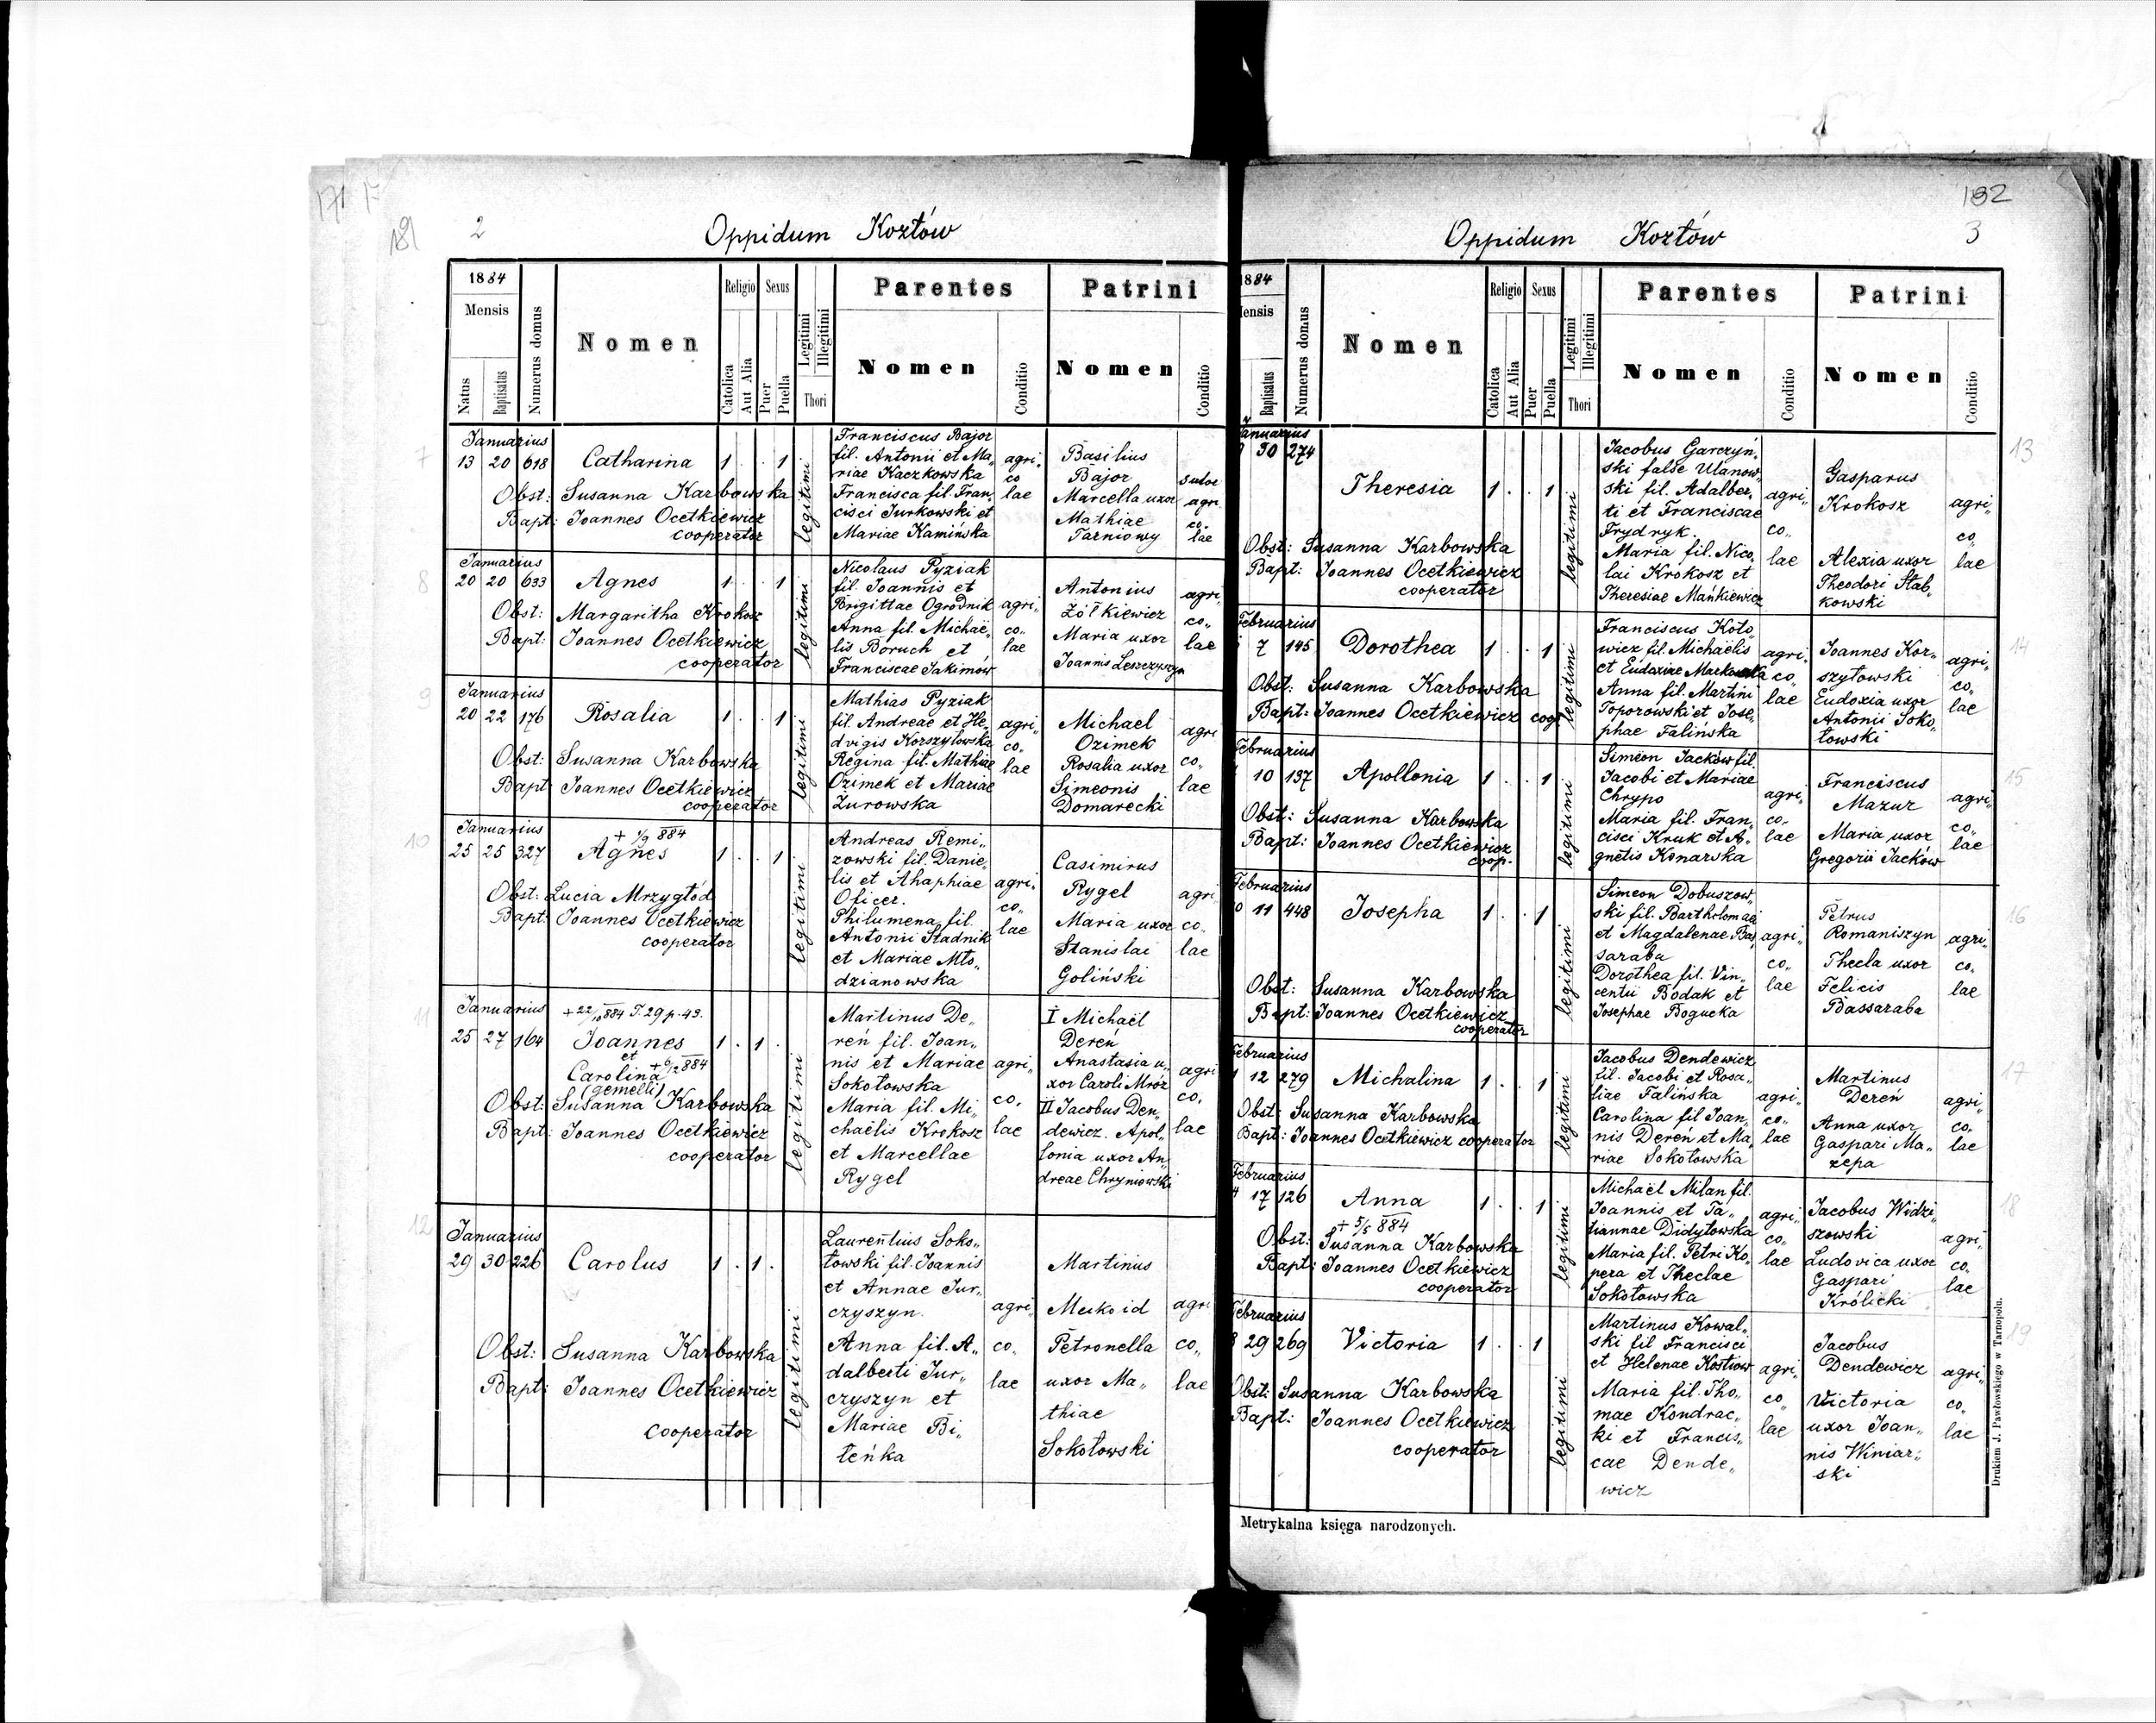 181
2
Oppidum Kozłów
1884
Mensis
Natus
Baptisatus
Numerus domus
Nomen
Religio
Catolica
Aut Alia
Sexus
Puer
Puella
Legitimi
Illegitimi
Thori
Parentes
Nomen
Conditio
Patrini
Nomen
Conditio
7
Januarius
13 20 618 Catharina 1 . . 1
Obst: Susanna Karbowska
Bapt: Joannes Ocetkiewicz
cooperator
legitimi
Franciscus Bajor
fil. Antonii et Ma„
riae Kaczkowska
Francisca fil. Fran„
cisci Jurkowski et
Mariae Kamińska
agri„
co
lae
Basilius
Bajor
Marcella uxor
Mathiae
Tarniowy
sutor
agri
co„
lae
8
Januarius
20 20 633 Agnes 1 . . 1
Obst: Margaritha Krokosz
Bapt: Joannes Ocetkiewicz
cooperator
legitimi
Nicolaus Pyziak
fil. Joannis et
Brigittae Ogrodnik
Anna fil. Michaë„
lis Boruch et
Franciscae Jakimów
agri„
co„
lae
Antonius
Żółkiewicz
Maria uxor
Joannis Leszczyszyn
agri
co„
lae
9
Januarius
20 22 176 Rosalia 1 . . 1
Obst: Susanna Karbowska
Bapt: Joannes Ocetkiewicz
cooperator
legitimi
Mathias Pyziak
fil. Andreae et He„
dvigis Korszyłowska
Regina fil. Mathiae
Ozimek et Mariae
Żurowska
agri„
co„
lae
Michael
Ozimek
Rosalia uxor
Simeonis
Domarecki
agri
co„
lae
10
Januarius
+ 1/9 884
25 25 327 Agnes 1 . . 1
Obst: Lucia Mrzygłód
Bapt: Joannes Ocetkiewicz
cooperator
legitimi
Andreas Remi„
zowski fil. Danie„
lis et Ahaphiae
Oficer.
Philumena fil.
Antonii Stadnik
et Mariae Mło„
dzianowska
agri„
co„
lae
Casimirus
Rygel
Maria uxor
Stanislai
Goliński
agri
co„
lae
11
Januarius
+ 22/10 884 T. 29 p. 43.
25 27 164 Joannes 1 . 1 .
et
Carolina + 6/2 884
(gemelli)
Obst: Susanna Karbowska
Bapt: Joannes Ocetkiewicz
cooperator
legitimi
Martinus De„
reń fil. Joan„
nis et Mariae
Sokołowska
Maria fil. Mi„
chaëlis Krokosz
et Marcellae
Rygel
agri„
co„
lae
I Michaël
Dereń
Anastasia u„
xor Caroli Mróz
II Jacobus Den„
dewicz. Apol„
lonia uxor An„
dreae Chryniowski
agri
co„
lae
12
Januarius
29 30 226 Carolus 1 . 1 .
Obst: Susanna Karbowska
Bapt: Joannes Ocetkiewicz
cooperator
legitimi
Laurentius Soko„
łowski fil. Joannis
et Annae Jur„
czyszyn.
Anna fil. A„
dalberti Jur„
czyszyn et
Mariae Bi„
łeńka
agri„
co„
lae
Martinus
Petronella
uxor Ma„
thiae
Sokołowski
agri
co„
lae
182
3
Oppidum Kozłów
1884
Mensis
Baptisatus
Numerus domus
Nomen
Religio
Catolica
Aut Alia
Sexus
Puer
Puella
Legitimi
Illegitimi
Thori
Parentes
Nomen
Conditio
Patrini
Nomen
Conditio
13
Januarius
30 274
Theresia 1 . . 1
Obst: Susanna Karbowska
Bapt: Joannes Ocetkiewicz
cooperator
legitimi
Jacobus Garczyń„
ski false Ulanow„
ski fil. Adalber„
ti et Franciscae
Frydryk.
Maria fil. Nico„
lai Krokosz et
Theresiae Mańkiewicz
agri„
co„
lae
Gasparus
Krokosz
Alexia uxor
Theodori Stab„
kowski
agri„
co„
lae
14
Februarius
7 145 Dorothea 1 . . 1
Obst: Susanna Karbowska
Bapt: Joannes Ocetkiewicz coop
legitimi
Franciscus Koto„
wicz fil. Michaëlis
et Eudoxiae Markowska
Anna fil. Martini
Toporowski et Jose„
phae Falińska
agri„
co„
lae
Joannes Kor„
szyłowski
Eudoxia uxor
Antonii Soko„
łowski
agri„
co„
lae
15
Februarius
10 137 Apollonia 1 . . 1
Obst: Susanna Karbowska
Bapt: Joannes Ocetkiewicz
coop.
legitimi
Simeon Jacków fil.
Jacobi et Mariae
Chrypo
Maria fil. Fran„
cisci Kruk et A„
gnetis Konarska
agri„
co„
lae
Franciscus
Mazur
Maria uxor
Gregorii Jacków
agri„
co„
lae
16
Februarius
11 448 Josepha 1 . . 1
Obst: Susanna Karbowska
Bapt: Joannes Ocetkiewicz
cooperator
legitimi
Simeon Dobuszow„
ski fil. Bartholomaei
et Magdalenae Bas„
saraba
Dorothea fil. Vin„
centii Bodak et
Josephae Bogucka
agri„
co„
lae
Petrus
Romaniszyn
Thecla uxor
Felicis
Bassaraba
agri„
co„
lae
17
Februarius
12 279 Michalina 1 . . 1
Obst: Susanna Karbowska
Bapt: Joannes Ocetkiewicz cooperator
legitimi
Jacobus Dendewicz
fil. Jacobi et Rosa„
liae Falińska
Carolina fil Joan„
nis Dereń et Ma„
riae Sokołowska
agri„
co„
lae
Martinus
Dereń
Anna uxor
Gaspari Ma„
zepa
agri„
co„
lae
18
Februarius
17 126 Anna 1 . . 1
+ 5/5 884
Obst: Susanna Karbowska
Bapt: Joannes Ocetkiewicz
cooperator
legitimi
Michaël Milan fil.
Joannis et Ta„
tiannae Didytowska
Maria fil. Petri Ko„
pera et Theclae
Sokołowska
agri„
co„
lae
Jacobus Widzi„
szowski
Ludovica uxor
Gaspari
Królicki
agri„
co„
lae
19
Februarius
29 269 Victoria 1 . . 1
Obst: Susanna Karbowska
Bapt: Joannes Ocetkiewicz
cooperator
legitimi
Martinus Kowal„
ski fil Francisci
et Helenae Kostiow
Maria fil. Tho„
mae Kondrac„
ki et Francis„
cae Dende„
wicz
agri„
co„
lae
Jacobus
Dendewicz
Victoria
uxor Joan„
nis Winiar„
ski
agri„
co„
lae
Drukiem J. Pawłowskiego w Tarnopolu.
Metrykalna księga narodzonych.